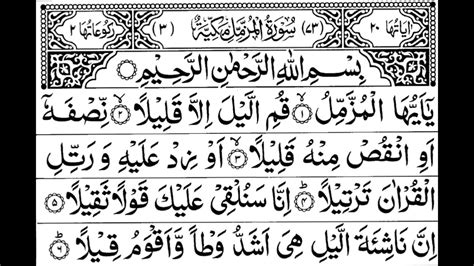 اٰیَاتُهَا ٢٠ (٧٣) سُوْرَةُ الْمُزَّمِّلِ مَكِّيَّةٌ (٣) رُكُوْعَاتُهَا ٢
بِسْمِ اللّٰهِ الرَّحْمٰنِ الرَّحِيْمِ ○
يٰۤاَيُّهَا الْمُزَّمِّلُ ۙ﴿١﴾ قُمِ الَّيْلَ اِلَّا قَلِيْلًا ۙ﴿٢﴾ نِّصْفَهٗۤ
اَوِ انْقُصْ مِنْهُ قَلِيْلًا ۙ﴿٣﴾ اَوْ زِدْ عَلَيْهِ وَ رَتِّلِ
الْقُرْاٰنَ تَرْتِيْلًا ؕ﴿٤﴾ اِنَّا سَنُلْقِيْ عَلَيْكَ قَوْلًا ثَقِيْلًا ﴿٥﴾
اِنَّ نَاشِئَةَ الَّيْلِ هِيَ اَشَدُّ وَطْاً وَّ اَقْوَمُ قِيْلًا ؕ﴿٦﴾